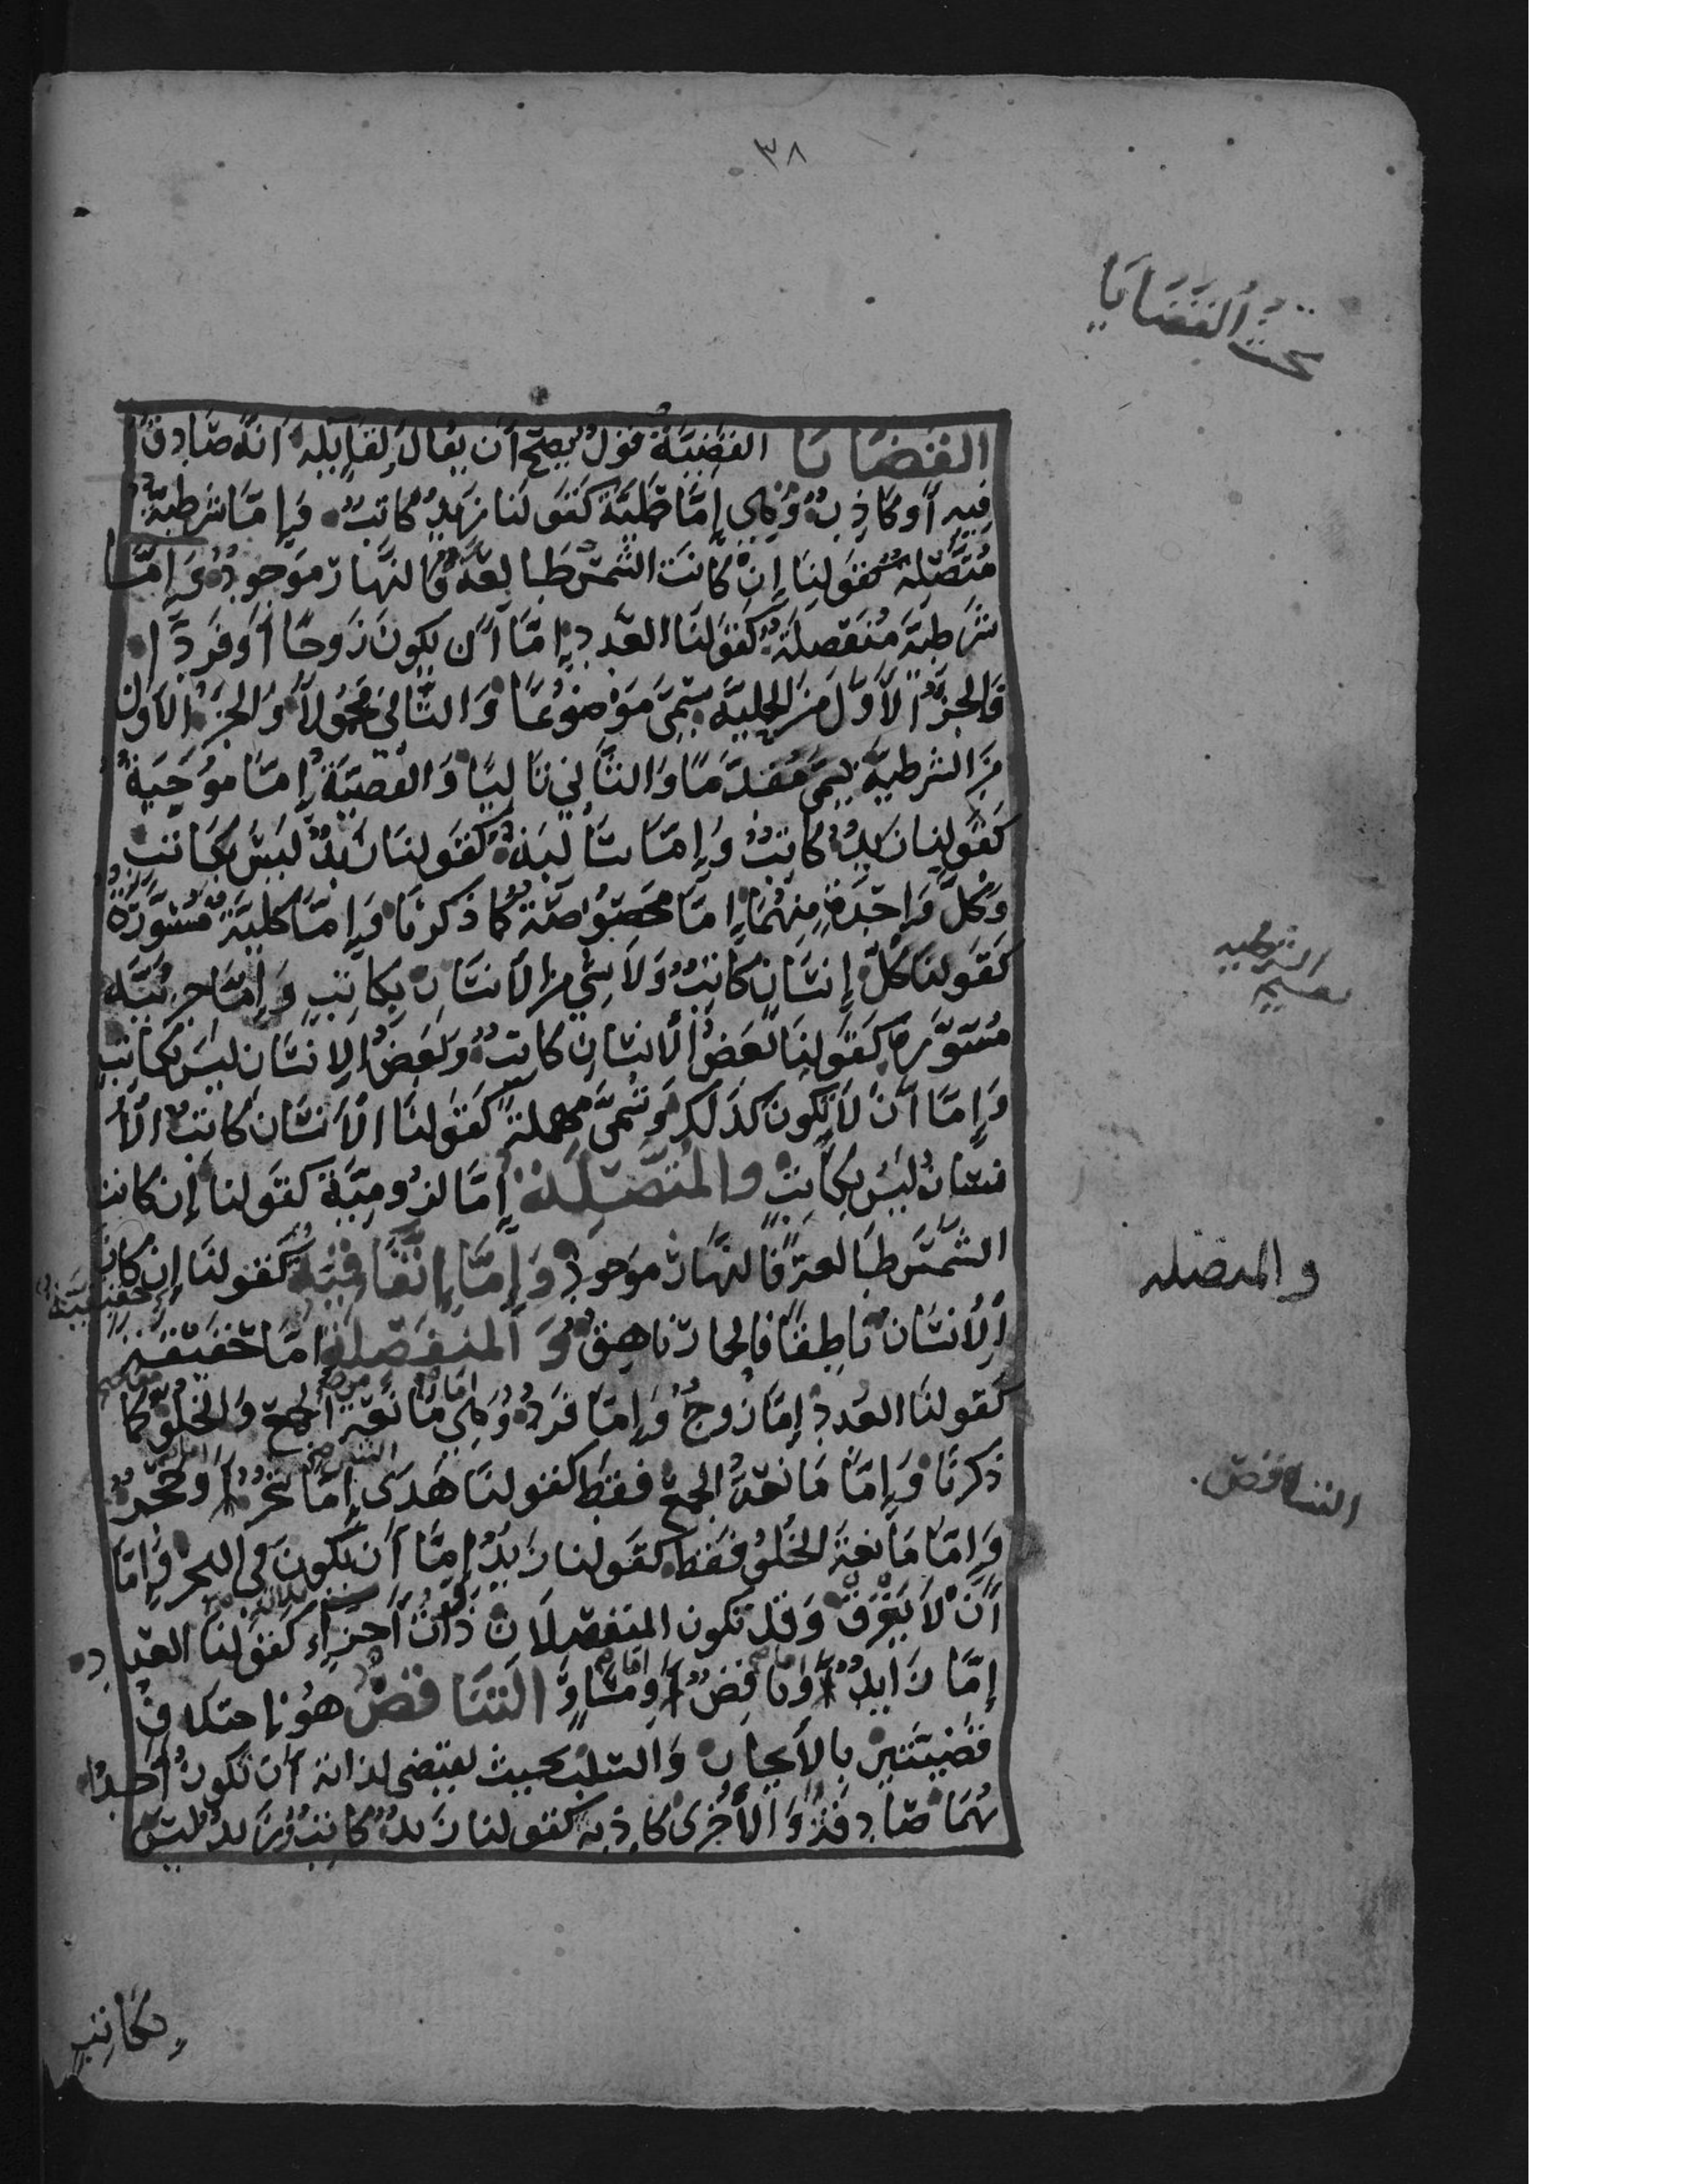 ٣٨
بحث القضايا
القضايا القضية قول يصح أن يقال لقايله أنه صادق
فيه أو كاذب وهي إما حملية كقولنا زيد كاتب وإما شرطية
متصلة كقولنا إن كانت الشمس طالعة فالنهار موجود وإما
شرطية منفصلة كقولنا العدد إما أن يكون زوجا أو فردا
فالجزء الأول من الحملية يسمى موضوعا والثاني محمولا والجزء الأول
من الشرطية يسمى مقدما والثاني تاليا والقضية إما موجبة
كقولنا زيد كاتب وإما سالبة كقولنا زيد ليس بكاتب
وكل واحدة منهما إما مخصوصة كما ذكرنا وإما كلية مسورة
كقولنا كل إنسان كاتب ولا شيء من الانسان بكاتب وإما جزئية
مسورة كقولنا بعض الانسان كاتب وبعض الانسان ليس بكاتب
وإما أن لا يكون كذلك وتسمى مهملة كقولنا الانسان كاتب الأ
نسان ليس بكاتب والمتصلة إما لزومية كقولنا إن كانت
الشمس طالعة فالنهار موجود وإما إتفاقية كقولنا إن كان
الأنسان ناطقا فالحمار ناهق و المنفصلة إما حقيقية
كقولنا العدد إما زوج وإما فرد وهي مانعة الجمع والخلو كما
ذكرنا وإما مانعة الجمع فقط كقولنا هذى إما شجر أو حجر
وإما مانعة الخلو فقط كقولنا زيد إما أن يكون في البحر وإما
أن لا يغرق وقد تكون المنفصلات ذوات أجزاء كقولنا العدد
إما زايد أو ناقص أو مساو التناقض هو إختلاف
قضيتين بالأيجاب والسلب بحيث يقتضى لذاته أن تكون أحدا
هما صادقة والأخرى كاذبة كقولنا زيد كاتب زيد ليس
بكاتب
الشرطيه
والمتصله
التناقض